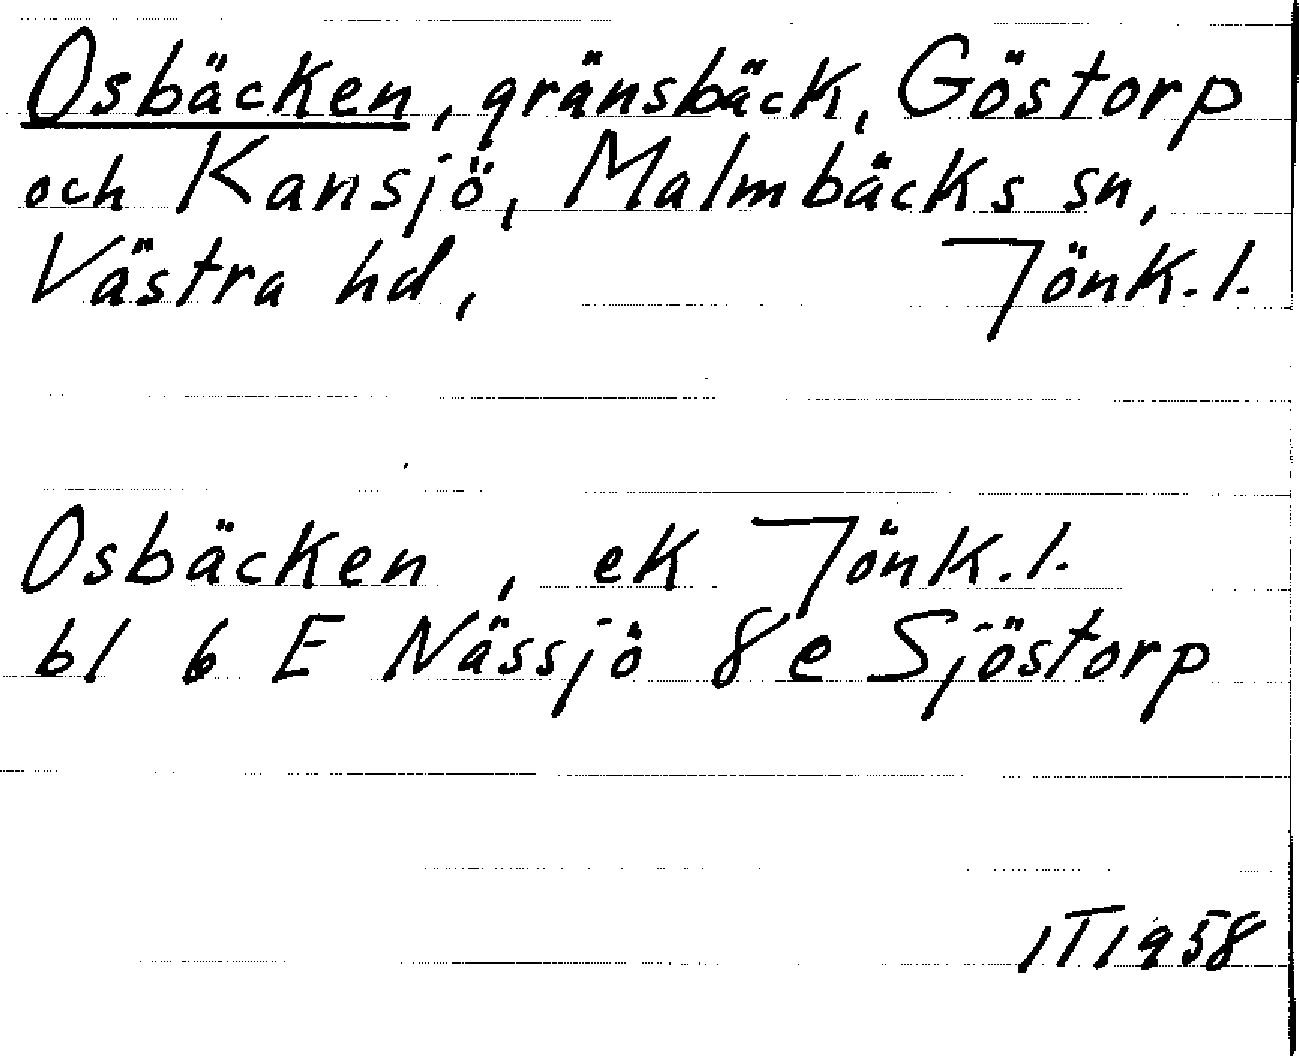 Osbäcken, gränsbäck, Göstorp
och Kansjö, Malmbäcks sn,
Västra hd, Jönk.l.
Osbäcken, ek Jönk.l.
bl 6 E Nässjö 8 e Sjöstorp
IT1958